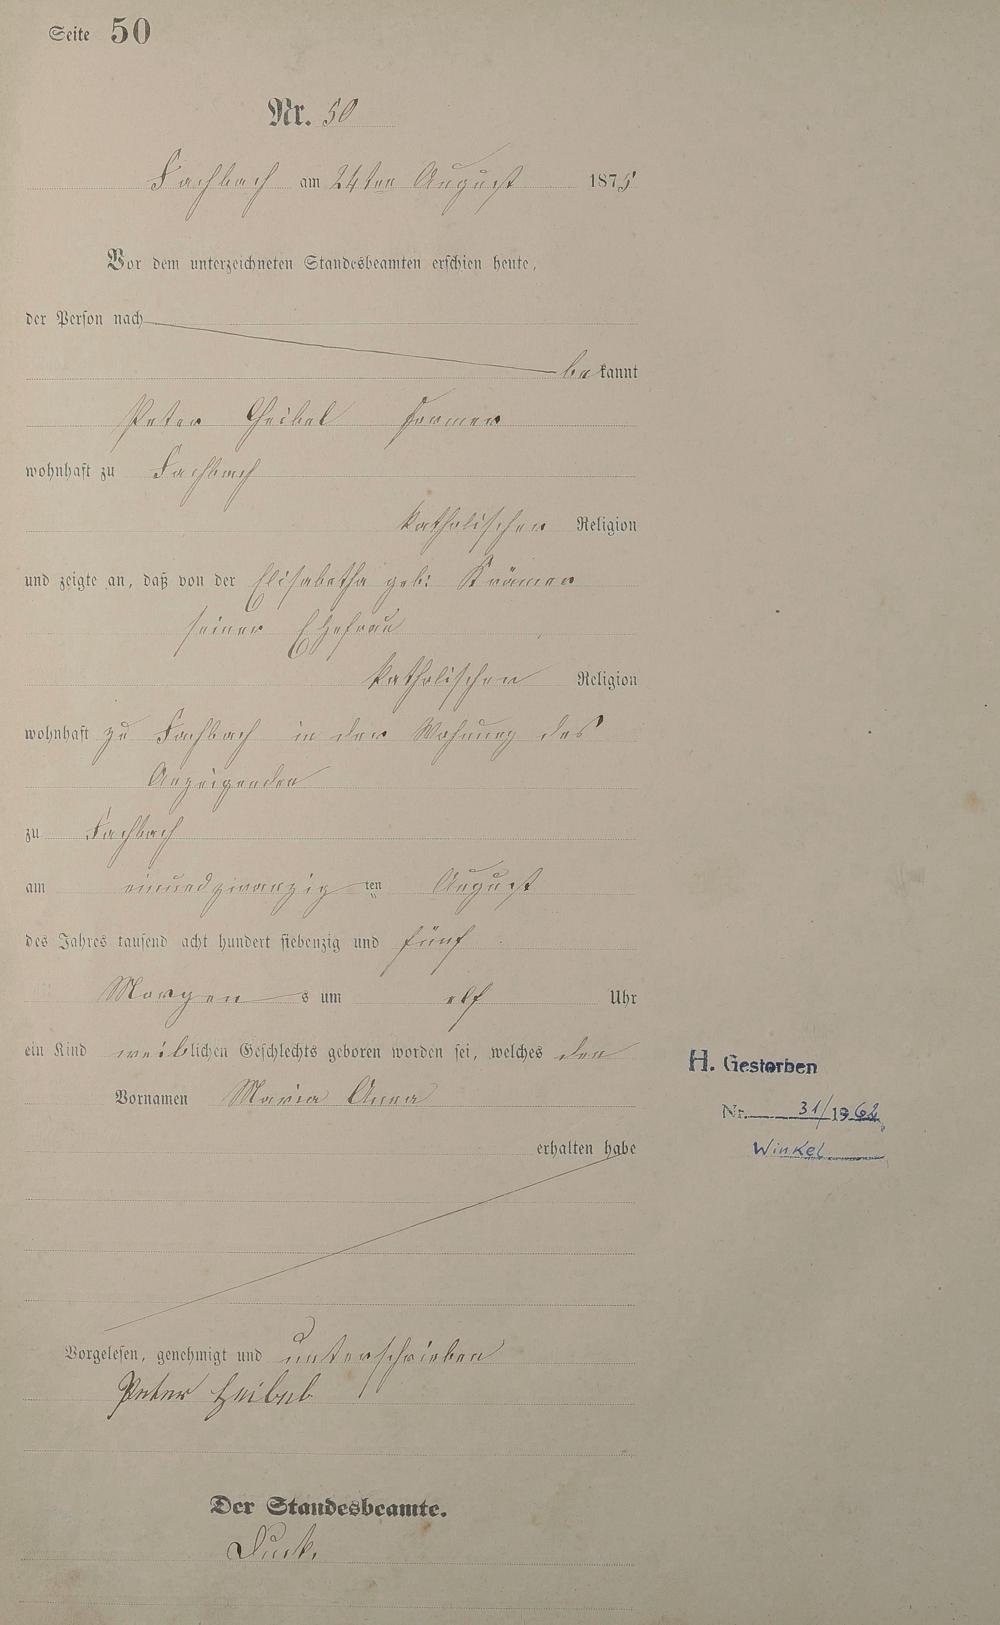 Seite 50
Nr. 50
Fachbach am 24ten August 1875
Vor dem unterzeichneten Standesbeamten erschien heute,
der Person nach
bekannt
Peter Theibel Former
wohnhaft zu Fachbach
katholischer Religion
und zeigte an, daß von der Elisabetha geb: Krämer
seiner Ehefrau
katholischer Religion
wohnhaft zu Fachbach in der Wohnung des
Anzeigenden
zu Fachbach
am einundzwanzig ten August
des Jahres tausend acht hundert siebenzig und fünf
Morgens um elf Uhr
ein Kind weiblichen Geschlechts geboren worden sei, welches den
H. Gestorben
Vornamen Maria Anna
Nr. 31/1962
erhalten habe
Winkel
Vorgelesen, genehmigt und unterschrieben
Peter Heibel
Der Standesbeamte.